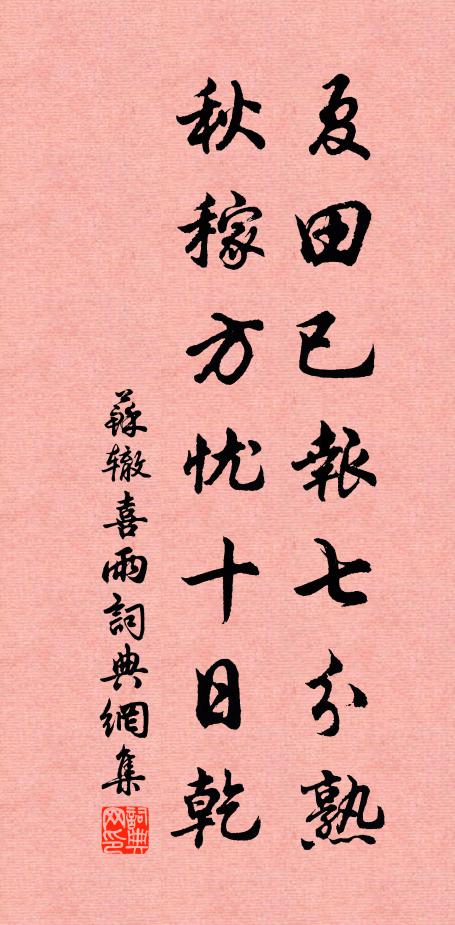 夏田已報七分熟
秋稼方忧十日乾
蘇辙喜雨詞典網集
詞典网印